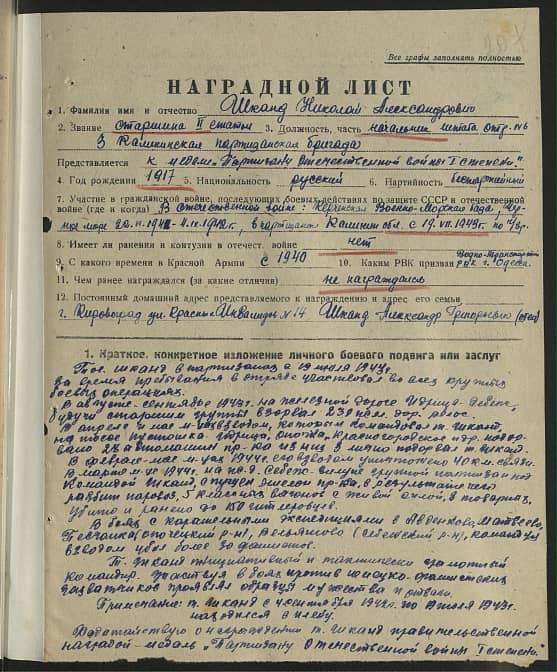 Все графы заполнять полностью
НАГРАДНОЙ ЛИСТ
1. Фамилия имя и отчество Шканд Николай Александрович
2. Звание старшина II статьи 3. Должность, часть начальник штаба отр. №6
3 Калининская партизанская бригада
Представляется к медали „Партизану Отечественной войны I степени".
4. Год рождения 1917 5. Национальность русский 6. Партийность беспартийный
7. Участие в гражданской войне, последующих боевых действиях по защите СССР и отечественной
войне (где и когда) В отечественной войне: Керченская Военно-Морская База,
в партизанах Калинин. обл. с 19.VII.1943г. по
8. Имеет ли ранении и контузии в отечест. войне нет
9. С какого времени в Красной Армии с 1940 10. Каким РВК призван Водно-Транспортн. рвк г. Одесса.
11. Чем ранее награждался (за какие отличия) не награждался
12. Постоянный домашний адрес представляемого к награждению и адрес его семьи
г. Кировоград ул. Красных Инвалидов №14 Шканд Александр Григорьевич (отец)
1. Краткое, конкретное изложение личного боевого подвига или заслуг
Тов. Шканд в партизанах с 19 июля 1943г.
За время пребывания в отряде участвовал во всех крупных
боевых операциях.
В августе-сентябре 1943г. на железной дороге Идрица-Себеж,
будучи старшим группы взорвал 235 жел. дор. рельс.
В апреле и мае м-ц взводом, которым командовал т. Шканд,
на шоссе Пустошка-Идрица, Опочка, Красногородское и др. подор-
вано 23 автомашины пр-ка из них 3 лично подорвал т. Шканд.
В феврале-мае м-цах 1944г. его взводом уничтожено 40 км. связи.
В марте м-це 1944г. на ж.д. Себеж-Зилупе группой партизан под
командой Шканд, спущен эшелон пр-ка, в результате чего
разбит паровоз, 5 классных вагонов с живой силой, товарных.
Убито и ранено до 150 гитлеровцев.
В боях с карательными экспедициями в Авденково, Матвеево,
Песчанка (Опочецкий р-н), (Себежский р-н), командуя
взводом убил более 30 фашистов.
Т. Шканд инициативный и тактически грамотный
командир. Участвуя в боях против немецко-фашистских
захватчиков проявлял образцы мужества и отваги.
Примечание: т. Шканд с 4 сентября 1942г. по 19 июля 1943г.
находился в плену.
Ходатайствую о награждении т. Шканд правительственной
наградой-медаль „Партизану Отечественной войны I степени".